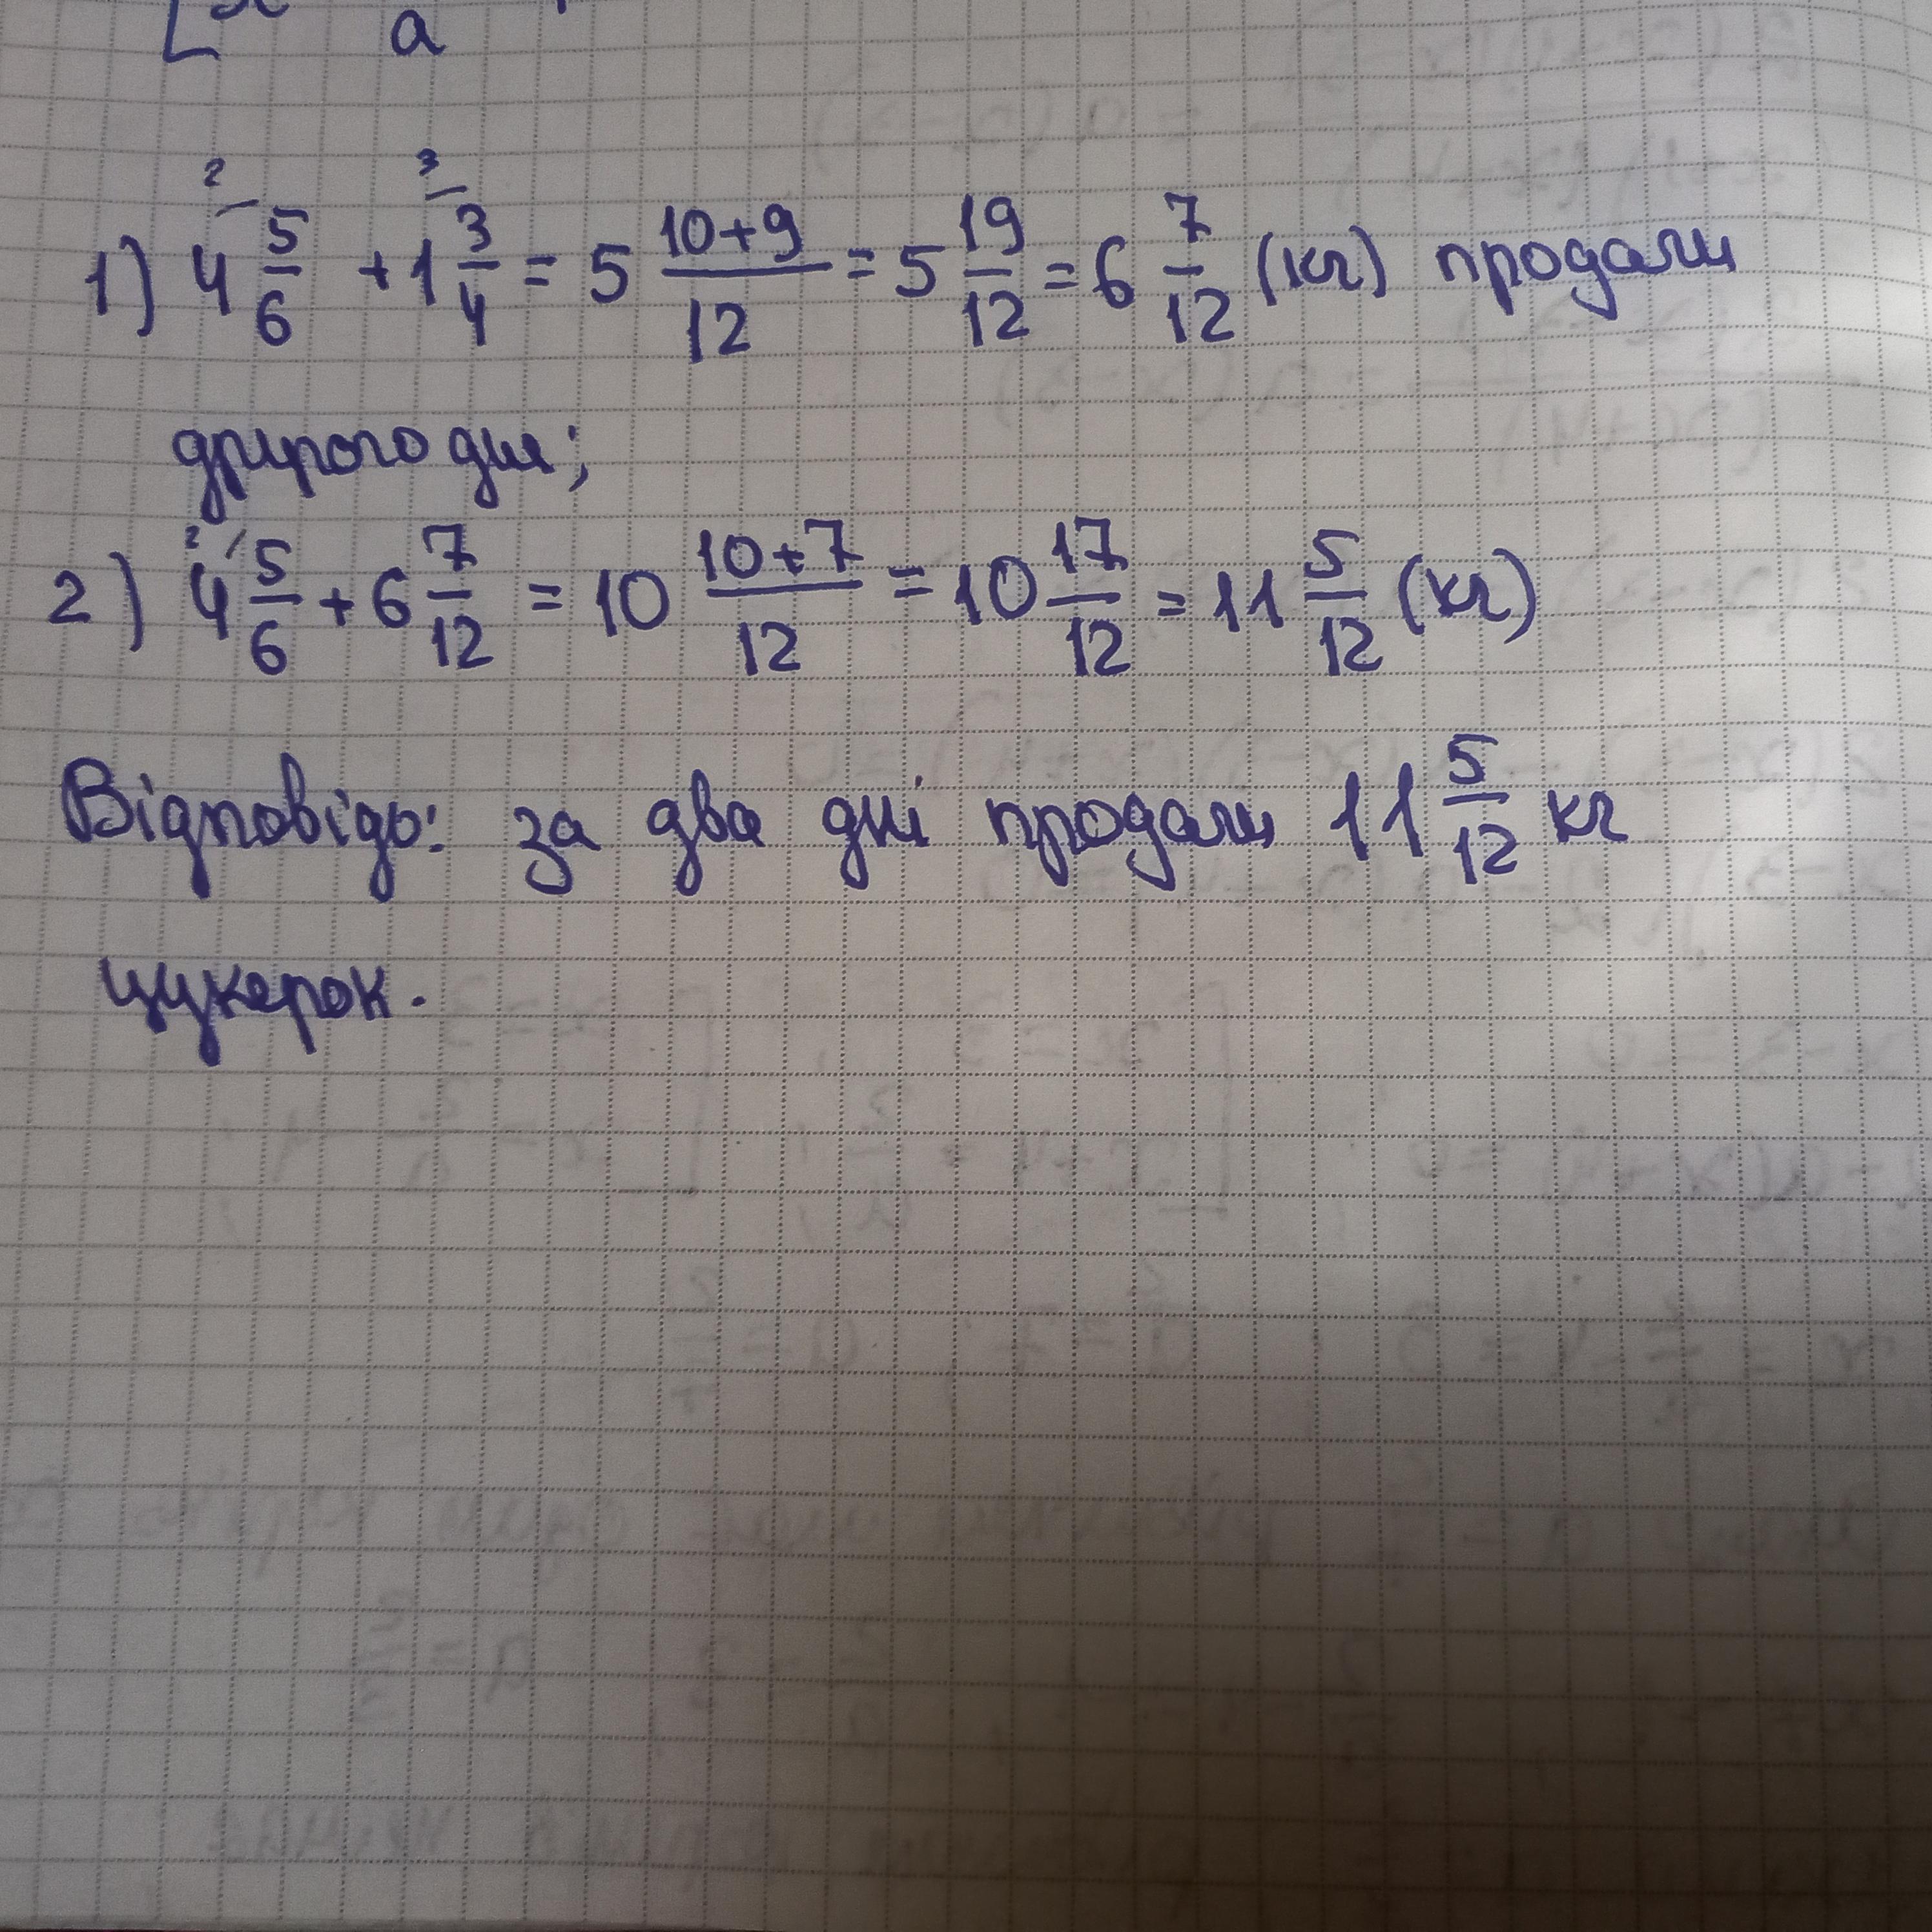 a
1) 4 5/6 + 1 3/4 = 5 10+9/12 = 5 19/12 = 6 7/12 (кг) продали
2 3
другого дня;
2) 4 5/6 + 6 7/12 = 10 10+7/12 = 10 17/12 = 11 5/12 (кг)
2
Відповідь: за два дні продали 11 5/12 кг
цукерок.